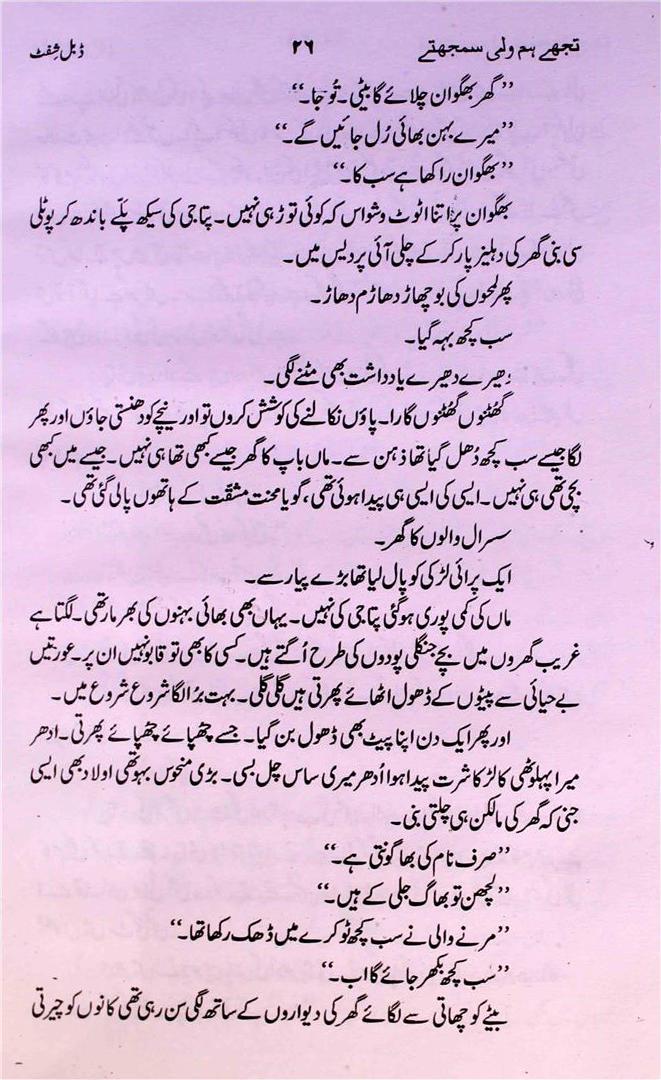 تجھے ہم ولی سمجھتے ۲۶ ڈبل شفٹ
’’گھر بھگوان چلائے گا بیٹی۔ تُو جا۔‘‘
’’میرے بہن بھائی رُل جائیں گے۔‘‘
’’بھگوان راکھا ہے سب کا۔‘‘
بھگوان پر اتنا اٹوٹ وشواس کہ کوئی توڑ ہی نہیں۔ پتا جی کی سیکھ پلّے باندھ کر پوٹلی
سی بنی گھر کی دہلیز پار کر کے چلی آئی پردیس میں۔
پھر لمحوں کی بوچھاڑ دھاڑم دھاڑ۔
سب کچھ بہہ گیا۔
دھیرے دھیرے یادداشت بھی مٹنے لگی۔
گھٹنوں گھٹنوں گارا۔ پاؤں نکالنے کی کوشش کروں تو اور نیچے کو دھنستی جاؤں اور پھر
لگا جیسے سب کچھ دُھل گیا تھا ذہن سے۔ ماں باپ کا گھر جیسے کبھی تھا ہی نہیں۔ جیسے میں کبھی
بچی تھی ہی نہیں۔ ایسی کی ایسی ہی پیدا ہوئی تھی، گویا محنت مشقّت کے ہاتھوں پالی گئی تھی۔
سسرال والوں کا گھر۔
ایک پرائی لڑکی کو پال لیا تھا بڑے پیار سے۔
ماں کی کمی پوری ہو گئی پتا جی کی نہیں۔ یہاں بھی بھائی بہنوں کی بھرمار تھی۔ لگتا ہے
غریب گھروں میں بچے جنگلی پودوں کی طرح اُگتے ہیں۔ کسی کا بھی تو قابو نہیں ان پر۔ عورتیں
بے حیائی سے پیٹوں کے ڈھول اٹھائے پھرتی ہیں گلی گلی۔ بہت بُرا لگا شروع شروع میں۔
اور پھر ایک دن اپنا پیٹ بھی ڈھول بن گیا۔ جسے چھپائے چھپائے پھرتی۔ ادھر
میرا پہلوٹھی کا لڑکا شرت پیدا ہوا اُدھر میری ساس چل بسی۔ بڑی منحوس بہو تھی اولاد بھی ایسی
جنی کہ گھر کی مالکن ہی چلتی بنی۔
’’صرف نام کی بھاگونتی ہے۔‘‘
’’لچھن تو بھاگ جلی کے ہیں۔‘‘
’’مرنے والی نے سب کچھ ٹوکرے میں ڈھک رکھا تھا۔‘‘
’’سب کچھ بکھر جائے گا اب۔‘‘
بیٹے کو چھاتی سے لگائے گھر کی دیواروں کے ساتھ لگی سن رہی تھی کانوں کو چیرتی